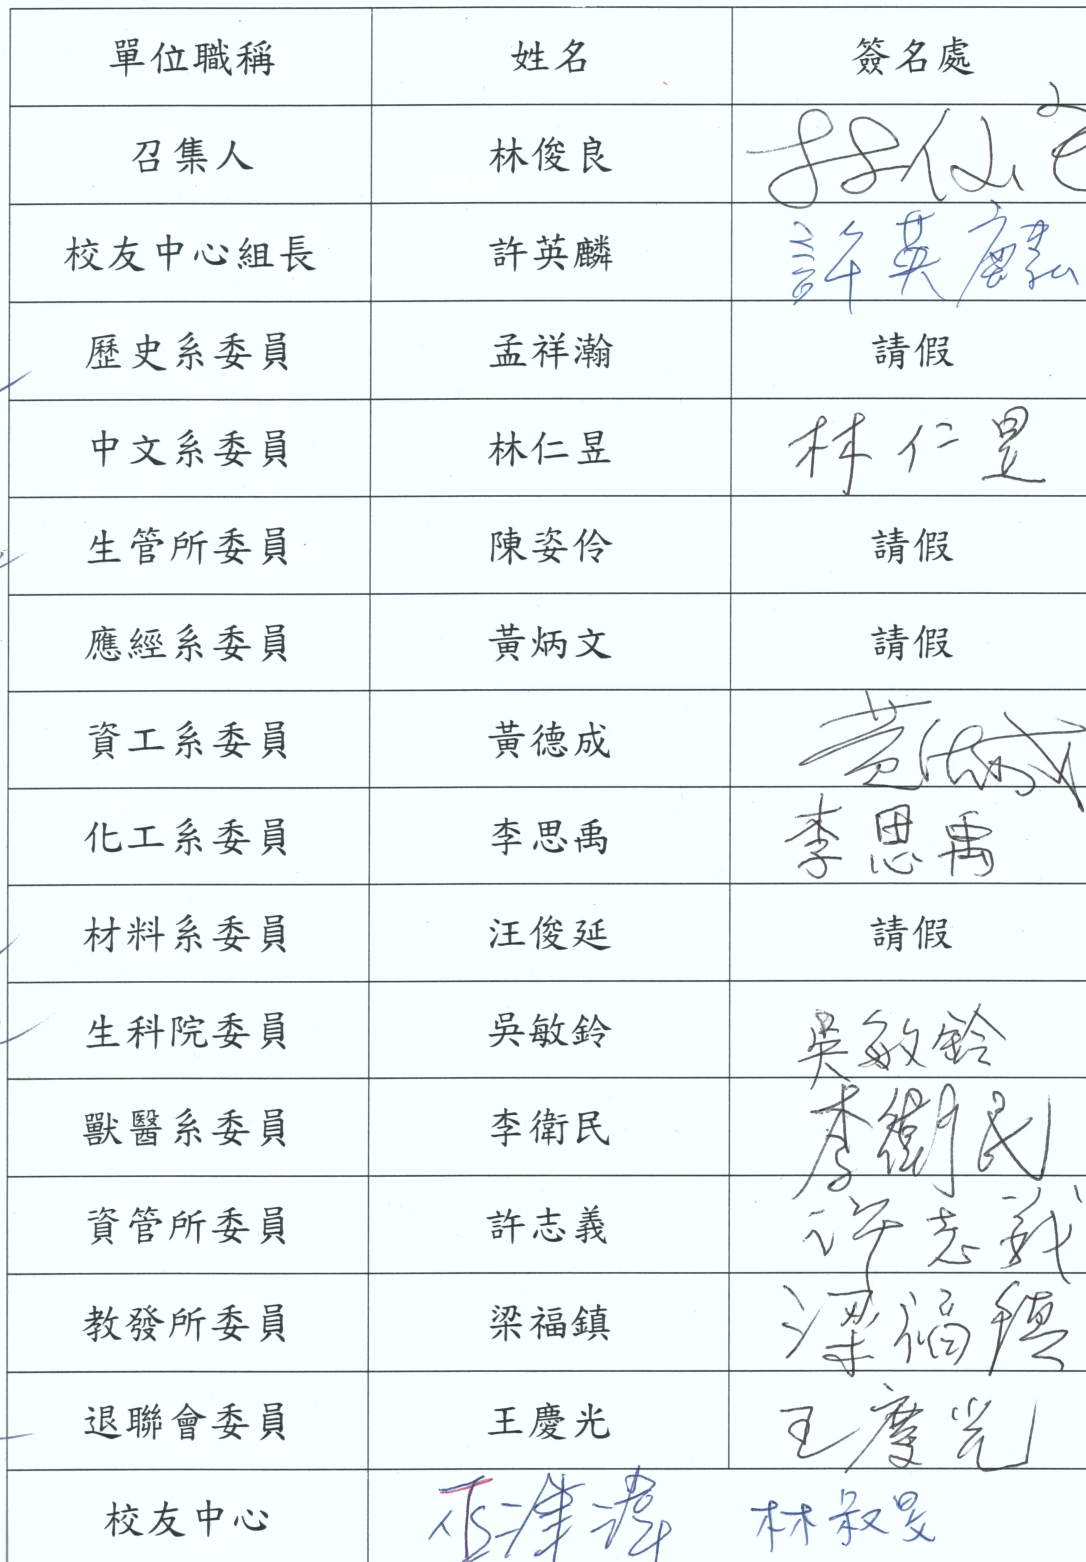 單位職稱 姓名 簽名處
召集人 林俊良 林俊良
校友中心組長 許英麟 許英麟
歷史系委員 孟祥瀚 請假
中文系委員 林仁昱 林仁昱
生管所委員 陳姿伶 請假
應經系委員 黃炳文 請假
資工系委員 黃德成 黃德成
化工系委員 李思禹 李思禹
材料系委員 汪俊延 請假
生科院委員 吳敏鈴 吳敏鈴
獸醫系委員 李衛民 李衛民
資管所委員 許志義 許志義
教發所委員 梁福鎮 梁福鎮
退聯會委員 王慶光 王慶光
校友中心 林